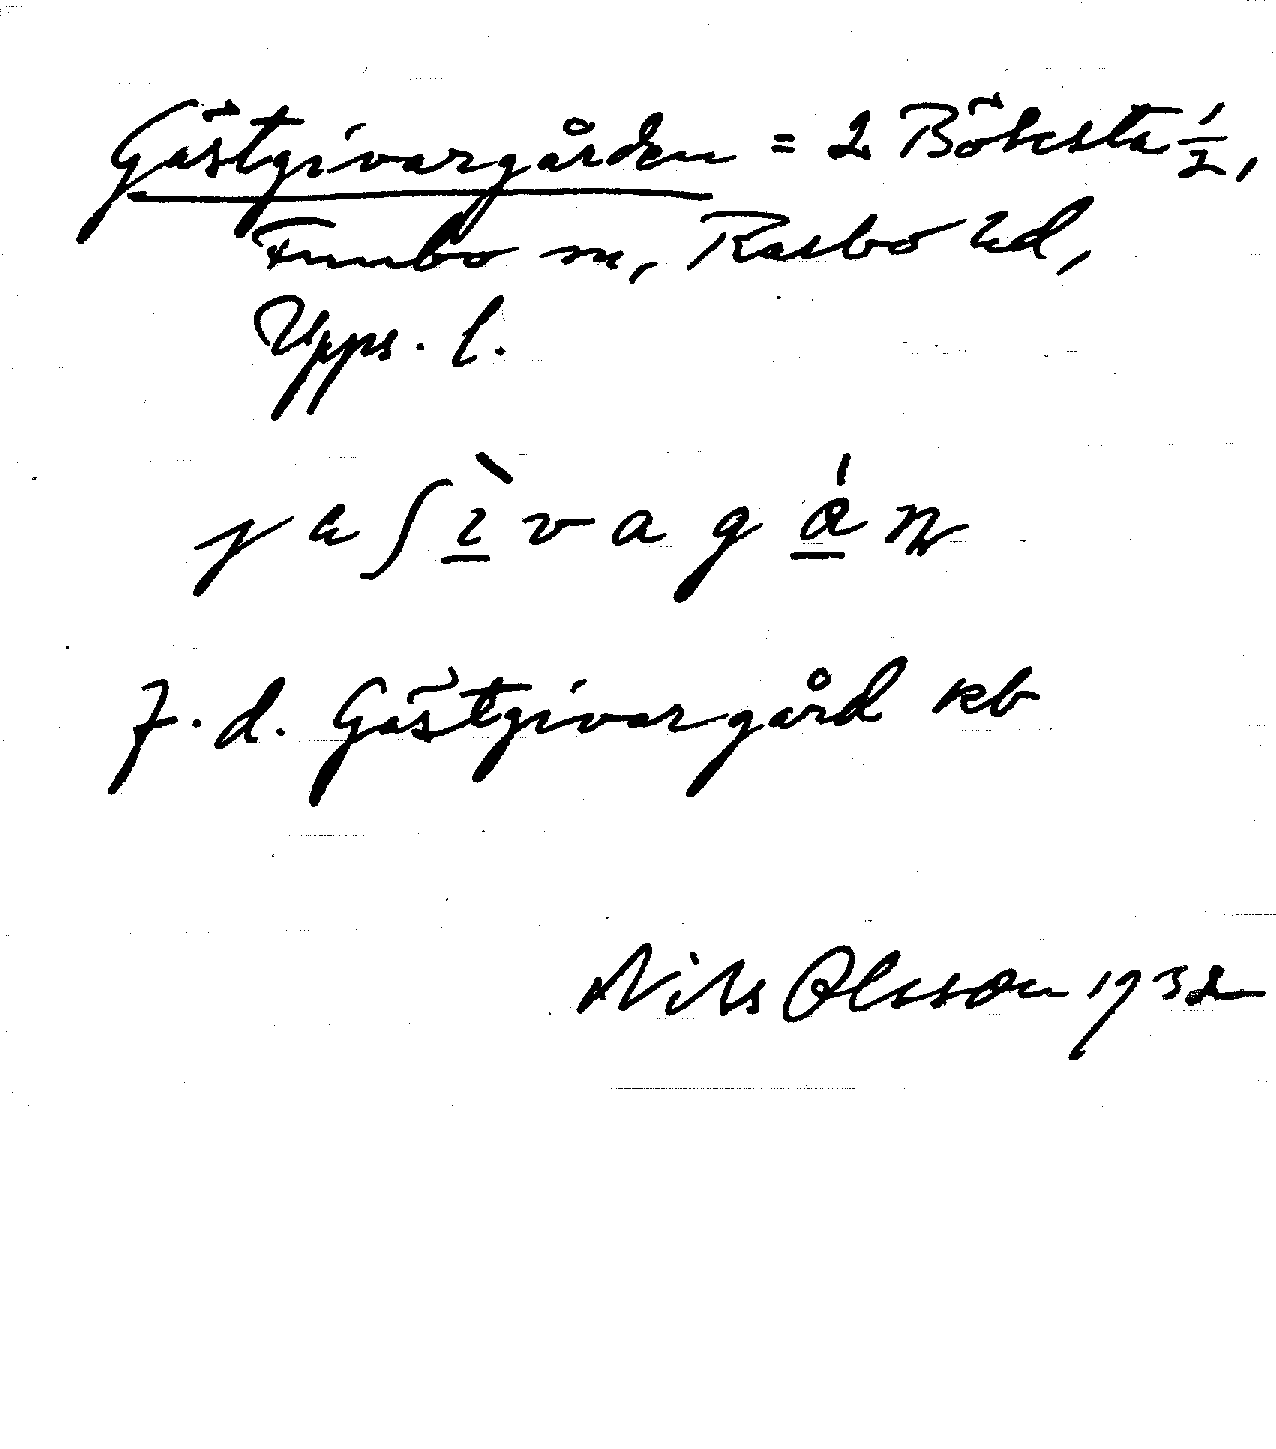 Gästgivargården = 2 Bölesta 1/2,
Funbo sn, Rasbo hd,
Upps. l.
F.d. Gästgivargård kb
Nils Olsson 1932